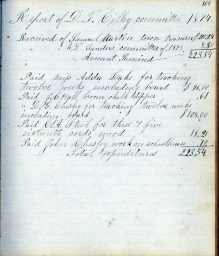 Report of D. F. Colby committee 1874.
Received of Samuel Martin town treasurer
" " Sanders committee of 1873
Amount Received 223.54
Paid Miss Addie for teaching
twelve weeks including board
Paid brown chld dipper .61
" D. E. Chesley for teaching twelve weeks
including board $108.00
Paid for three & five
sixteenth cords wood 18.21
Paid John Chesley work on schoolhouse
Total expenditures 223.54